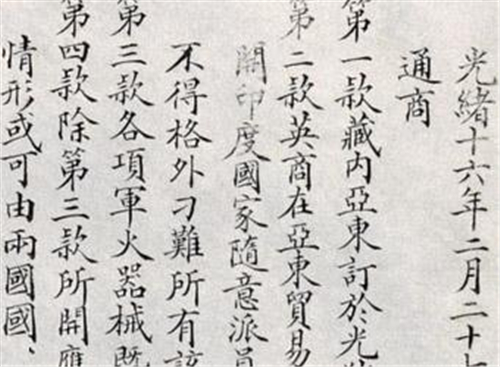 光緒十六年二月二十七
通商
第一款藏內亞東訂於光
第二款英商在亞東貿易
開印度國家隨意派員
不得格外刁難所有該
第三款各項軍火器械
第四款除第三款所開應
情形或可由兩國國、